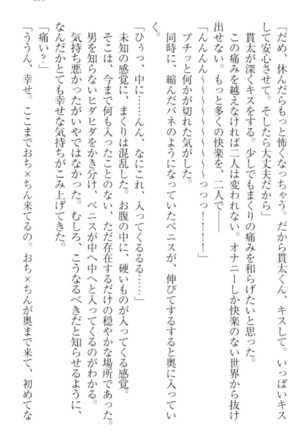 「だめ、休んだらもっと怖くなっちゃう。だから貫太くん、キスして。いっぱいキス
して安心させて。そしたら大丈夫だから」
貫太が深くキスをする。少しでもまくりの痛みを和らげたいと思った。
この痛みを越えなければ二人は変われない。オナニーしか快楽のない世界から抜け
出せない。もっと多くの快楽を、二人で――
「んんんん〜〜〜〜〜〜〜〜〜っっっ！！！！」
ブチッと何かが切れた気がした。
同時に、縮んだバネのようになっていたペニスが、伸びてするすると奥に入ってい
く。
「ひぅっ、中に……んん、なにこれ、入ってくるるる……」
未知の感覚に、まくりは混乱した。お腹の中に、硬いものが入ってくる感覚。
そこは、今まで何も入ったことのない、ただ存在するだけの穏やかな場所。
男を知らないヒダヒダをかき分け、ペニスが中へ中へと入ってくるのがわかる。
気持ち悪さだったがいやではなかった。むしろ、こうなるべきだと知らせるように、
なんだかとても幸せな気持ちがこみ上げてきた。
「痛い？」
「ううん、幸せ。ここまでおち×ちん来てるの。おち×ちんが奥まで来て、初めてな